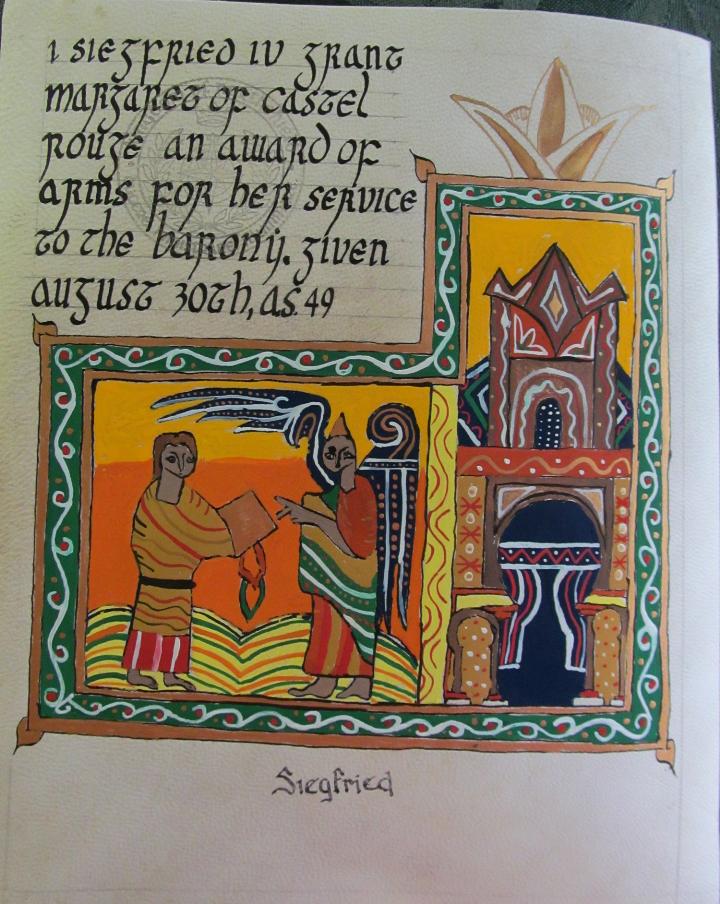 I Siegfried IV grant
Margaret of Castel
Rouge an award of
arms for her service
to the barony. Given
august 30th, a.s. 49
Siegfried